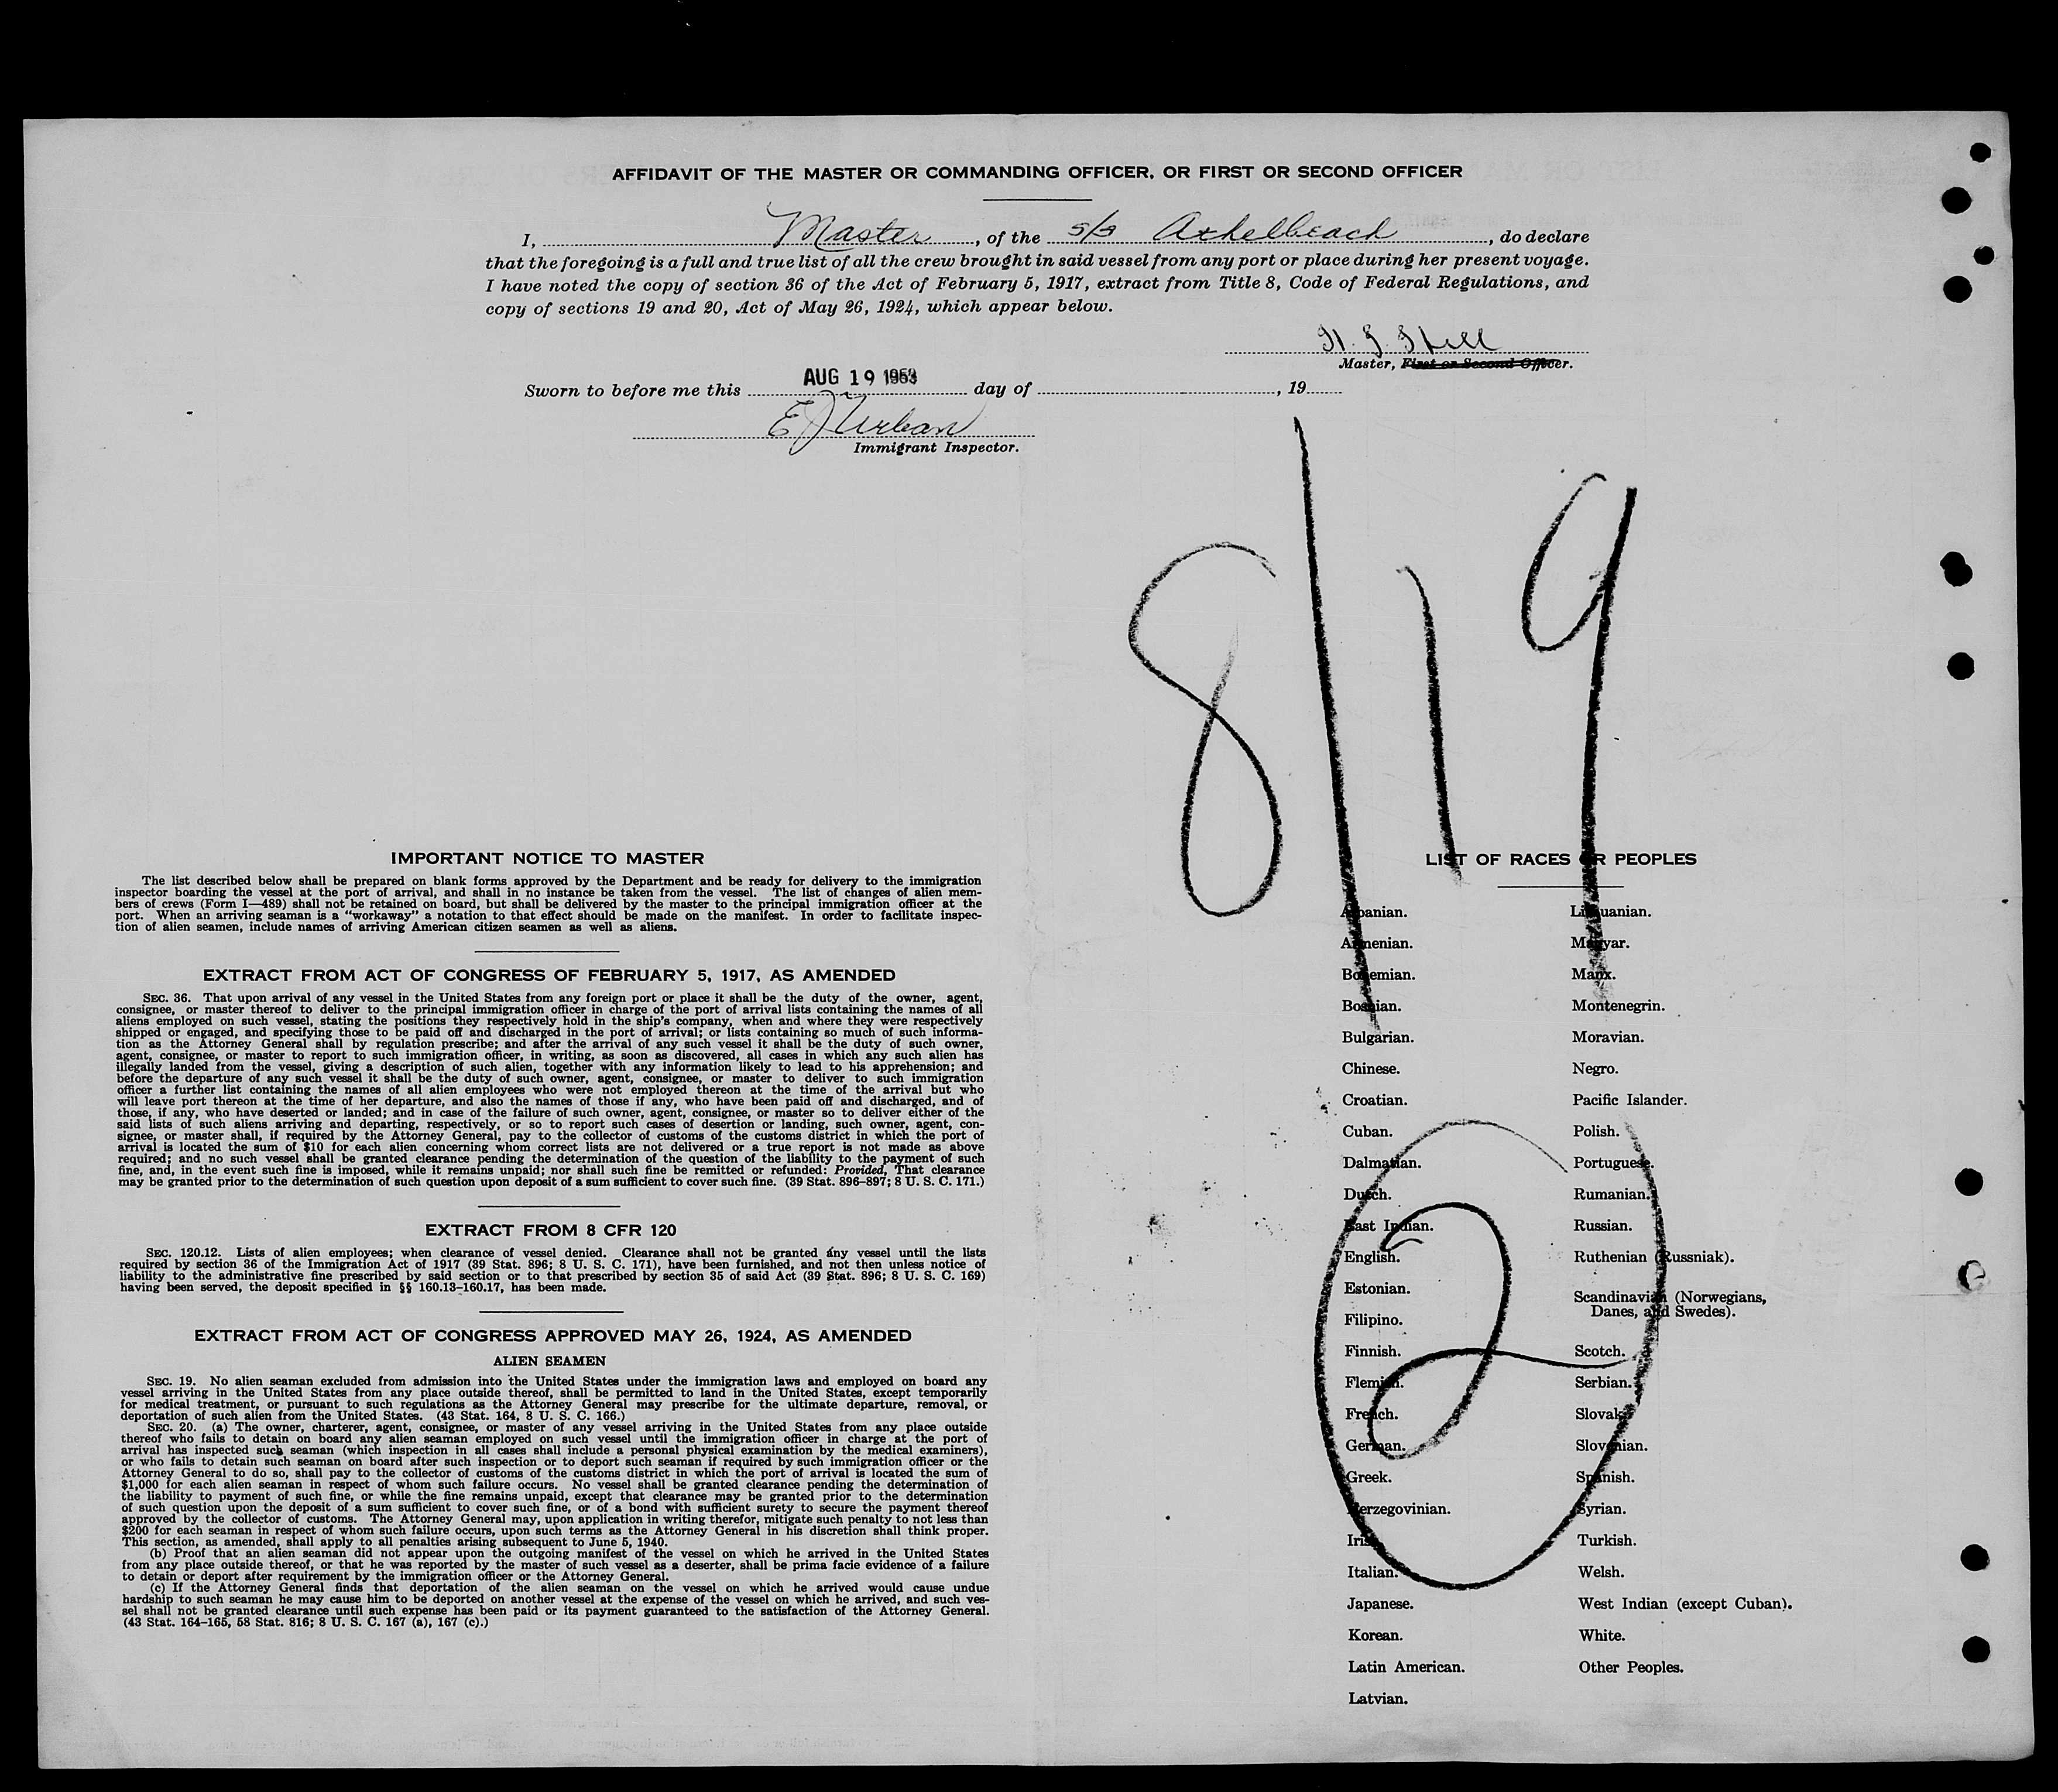 AFFIDAVIT OF THE MASTER OR COMMANDING OFFICER, OR FIRST OR SECOND OFFICER
I, Master, of the s/s Axhelbeach, do declare
that the foregoing is a full and true list of all the crew brought in said vessel from any port or place during her present voyage.
I have noted the copy of section 36 of the Act of February 5, 1917, extract from Title 8, Code of Federal Regulations, and
copy of sections 19 and 20, Act of May 26, 1924, which appear below.
Master, First or Second Officer.
Sworn to before me this AUG 19 1953 day of , 19
E J Urban
Immigrant Inspector.
8/19
IMPORTANT NOTICE TO MASTER
The list described below shall be prepared on blank forms approved by the Department and be ready for delivery to the immigration
inspector boarding the vessel at the port of arrival, and shall in no instance be taken from the vessel. The list of changes of alien mem-
bers of crews (Form I—489) shall not be retained on board, but shall be delivered by the master to the principal immigration officer at the
port. When an arriving seaman is a "workaway" a notation to that effect should be made on the manifest. In order to facilitate inspec-
tion of alien seamen, include names of arriving American citizen seamen as well as aliens.
EXTRACT FROM ACT OF CONGRESS OF FEBRUARY 5, 1917, AS AMENDED
SEC. 36. That upon arrival of any vessel in the United States from any foreign port or place it shall be the duty of the owner, agent,
consignee, or master thereof to deliver to the principal immigration officer in charge of the port of arrival lists containing the names of all
aliens employed on such vessel, stating the positions they respectively hold in the ship's company, when and where they were respectively
shipped or engaged, and specifying those to be paid off and discharged in the port of arrival; or lists containing so much of such informa-
tion as the Attorney General shall by regulation prescribe; and after the arrival of any such vessel it shall be the duty of such owner,
agent, consignee, or master to report to such immigration officer, in writing, as soon as discovered, all cases in which any such alien has
illegally landed from the vessel, giving a description of such alien, together with any information likely to lead to his apprehension; and
before the departure of any such vessel it shall be the duty of such owner, agent, consignee, or master to deliver to such immigration
officer a further list containing the names of all alien employees who were not employed thereon at the time of the arrival but who
will leave port thereon at the time of her departure, and also the names of those if any, who have been paid off and discharged, and of
those, if any, who have deserted or landed; and in case of the failure of such owner, agent, consignee, or master so to deliver either of the
said lists of such aliens arriving and departing, respectively, or so to report such cases of desertion or landing, such owner, agent, con-
signee, or master shall, if required by the Attorney General, pay to the collector of customs of the customs district in which the port of
arrival is located the sum of $10 for each alien concerning whom correct lists are not delivered or a true report is not made as above
required; and no such vessel shall be granted clearance pending the determination of the question of the liability to the payment of such
fine, and, in the event such fine is imposed, while it remains unpaid; nor shall such fine be remitted or refunded: Provided, That clearance
may be granted prior to the determination of such question upon deposit of a sum sufficient to cover such fine. (39 Stat. 896–897; 8 U. S. C. 171.)
EXTRACT FROM 8 CFR 120
SEC. 120.12. Lists of alien employees; when clearance of vessel denied. Clearance shall not be granted any vessel until the lists
required by section 36 of the Immigration Act of 1917 (39 Stat. 896; 8 U. S. C. 171), have been furnished, and not then unless notice of
liability to the administrative fine prescribed by said section or to that prescribed by section 35 of said Act (39 Stat. 896; 8 U. S. C. 169)
having been served, the deposit specified in §§ 160.13–160.17, has been made.
EXTRACT FROM ACT OF CONGRESS APPROVED MAY 26, 1924, AS AMENDED
ALIEN SEAMEN
SEC. 19. No alien seaman excluded from admission into the United States under the immigration laws and employed on board any
vessel arriving in the United States from any place outside thereof, shall be permitted to land in the United States, except temporarily
for medical treatment, or pursuant to such regulations as the Attorney General may prescribe for the ultimate departure, removal, or
deportation of such alien from the United States. (43 Stat. 164, 8 U. S. C. 166.)
SEC. 20. (a) The owner, charterer, agent, consignee, or master of any vessel arriving in the United States from any place outside
thereof who fails to detain on board any alien seaman employed on such vessel until the immigration officer in charge at the port of
arrival has inspected such seaman (which inspection in all cases shall include a personal physical examination by the medical examiners),
or who fails to detain such seaman on board after such inspection or to deport such seaman if required by such immigration officer or the
Attorney General to do so, shall pay to the collector of customs of the customs district in which the port of arrival is located the sum of
$1,000 for each alien seaman in respect of whom such failure occurs. No vessel shall be granted clearance pending the determination of
the liability to payment of such fine, or while the fine remains unpaid, except that clearance may be granted prior to the determination
of such question upon the deposit of a sum sufficient to cover such fine, or of a bond with sufficient surety to secure the payment thereof
approved by the collector of customs. The Attorney General may, upon application in writing therefor, mitigate such penalty to not less than
$200 for each seaman in respect of whom such failure occurs, upon such terms as the Attorney General in his discretion shall think proper.
This section, as amended, shall apply to all penalties arising subsequent to June 5, 1940.
(b) Proof that an alien seaman did not appear upon the outgoing manifest of the vessel on which he arrived in the United States
from any place outside thereof, or that he was reported by the master of such vessel as a deserter, shall be prima facie evidence of a failure
to detain or deport after requirement by the immigration officer or the Attorney General.
(c) If the Attorney General finds that deportation of the alien seaman on the vessel on which he arrived would cause undue
hardship to such seaman he may cause him to be deported on another vessel at the expense of the vessel on which he arrived, and such ves-
sel shall not be granted clearance until such expense has been paid or its payment guaranteed to the satisfaction of the Attorney General.
(43 Stat. 164–165, 58 Stat. 816; 8 U. S. C. 167 (a), 167 (c).)
LIST OF RACES OR PEOPLES
Albanian.
Armenian.
Bohemian.
Bosnian.
Bulgarian.
Chinese.
Croatian.
Cuban.
Dalmatian.
Dutch.
East Indian.
English.
Estonian.
Filipino.
Finnish.
Flemish.
French.
German.
Greek.
Herzegovinian.
Irish.
Italian.
Japanese.
Korean.
Latin American.
Latvian.
Lithuanian.
Magyar.
Manx.
Montenegrin.
Moravian.
Negro.
Pacific Islander.
Polish.
Portuguese.
Rumanian.
Russian.
Ruthenian (Russniak).
Scandinavian (Norwegians,
Danes, and Swedes).
Scotch.
Serbian.
Slovak.
Slovenian.
Spanish.
Syrian.
Turkish.
Welsh.
West Indian (except Cuban).
White.
Other Peoples.
2